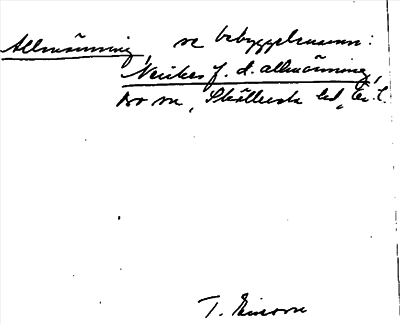 Allmänning, se bebyggelsenamn:
Neckes f. d. allmänning,
Bo sn, Skyllersta hd, Ör. l.
T. Ericsson